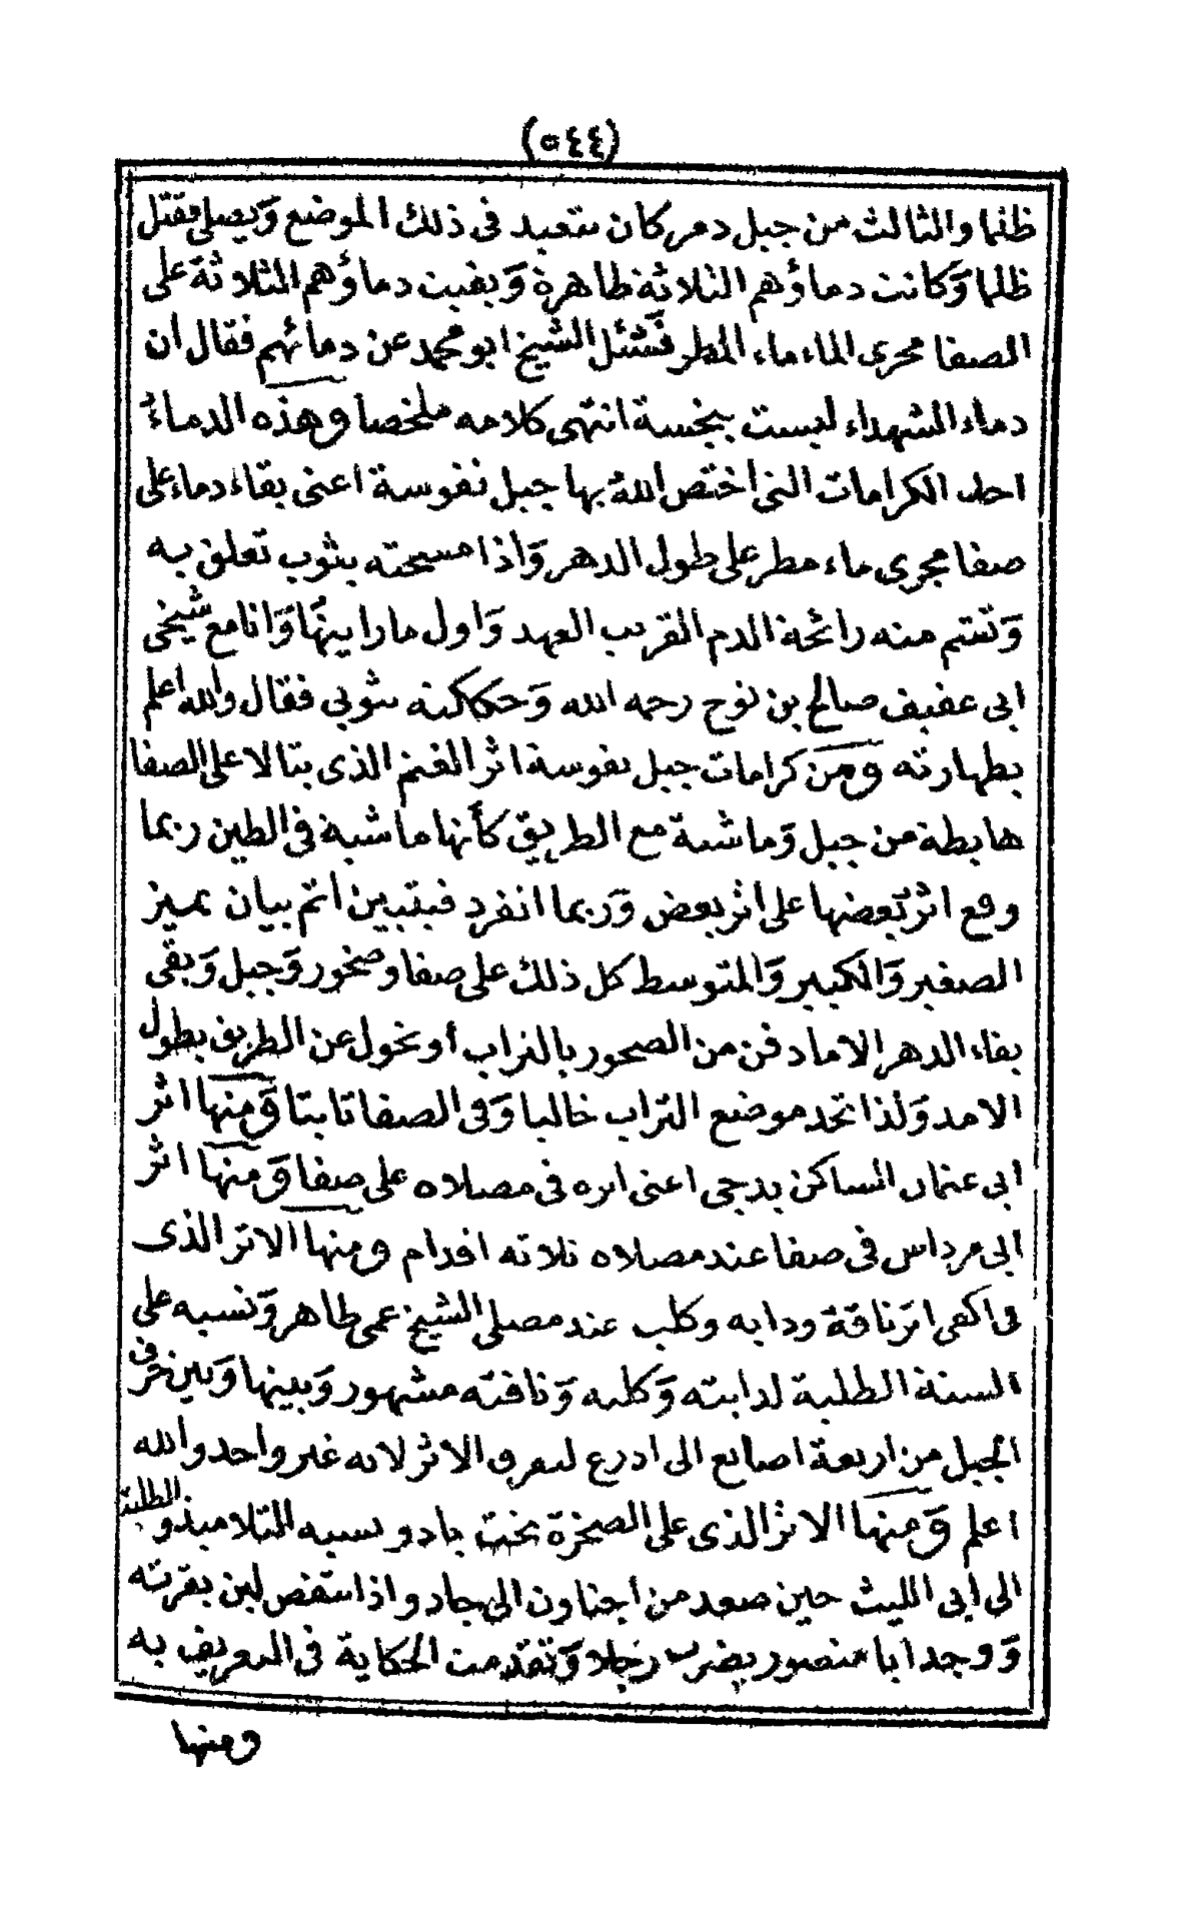 (٥٤٤)
ظلما والثالث من جبل دمر كان يتعبد فى ذلك الموضع وَيصلى فقتل
ظلما وَكانت دماؤهم الثلاثة ظاهرة وَبقيت دماؤهم الثلاثة على
الصفا مجرى الماء ماء المطر فَسُئل الشيخ ابو محمد عن دمائهم فقال ان
دماء الشهداء ليست بنجسة انتهى كلامه ملخصا وهذه الدماءُ
احد الكرامات التى اختص اللهُ بها جبل نفوسة اعنى بقاء دماء على
صفا مجرى ماء مطر على طول الدهر وَاذا مسحته بثوب تعلق به
وَتشم منه رائحة الدم القريب العهد وَاول ما رايتهَا وَانا مع شيخى
ابى عفيف صالح بن نوح رحمه الله وَحككته بثوبى فقال والله اعلم
بطهارته ومن كرامات جبل نفوسة اثر الغنم الذى يتالا على الصفا
هابطة من جبل وَماشية مع الطريق كأنها ماشية فى الطين ربما
وقع اثر بَعضها على اثر بعض وَربما انفرد فيتبين اتم بيان يميز
الصغير وَالكبير وَالمتوسط كل ذلك على صفا وصخور وَجبل وَبقى
بقاء الدهر الا ما دفن من الصحور بالتراب أو تحول عن الطريق بطول
الامد وَلذا تجد موضع التراب خاليا وَفى الصفا ثابتا وَمنها اثر
ابى عثمان المساكن بدجى اعنى اثره فى مصلاه على صفا وَمنها اثر
ابى مرداس فى صفا عند مصلاه ثلاثة اقدام ومنها الاثر الذى
فى اكعى اثر ناقة ودابه وكلب عند مصلى الشيخ عمى طاهر وَنسبه على
السنة الطلبة لدابته وَكلبه وَناقته مشهور وَبينها وَبين حرف
الجبل من اربعة اصابع الى ادرع ليعرف الاثر لانه غير واحد والله
اعلم وَمنها الاثر الذى على الصخرة تحت جادو نسبه التلاميذ و الطلبة
الى ابى الليث حين صعد من اجناون الى جادو اذ استفض لبن بقرته
وَوجد ابا منصور يضرب رجلا وَتقدمت الحكاية فى التعريف به
ومنها